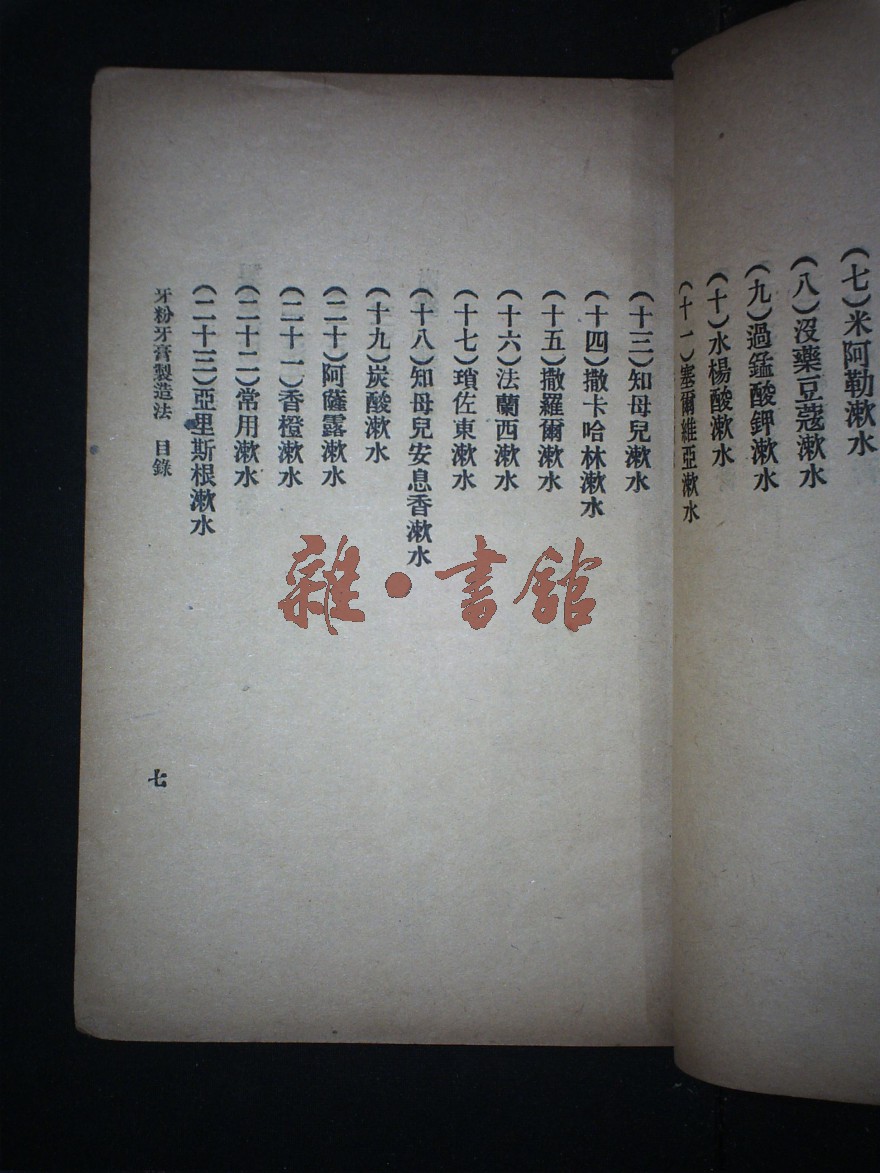 (七)米阿勒漱水
(八)沒藥豆蔻漱水
(九)過錳酸鉀漱水
(十)水楊酸漱水
(十一)塞爾維亞漱水
(十三)知母兒漱水
(十四)撒卡哈林漱水
(十五)撒羅爾漱水
(十六)法蘭西漱水
(十七)瑣佐東漱水
(十八)知母兒安息香漱水
(十九)炭酸漱水
(二十)阿薩露漱水
(二十一)香橙漱水
(二十二)常用漱水
(二十三)亞里斯根漱水
牙粉牙膏製造法 目錄
七
雜·書館